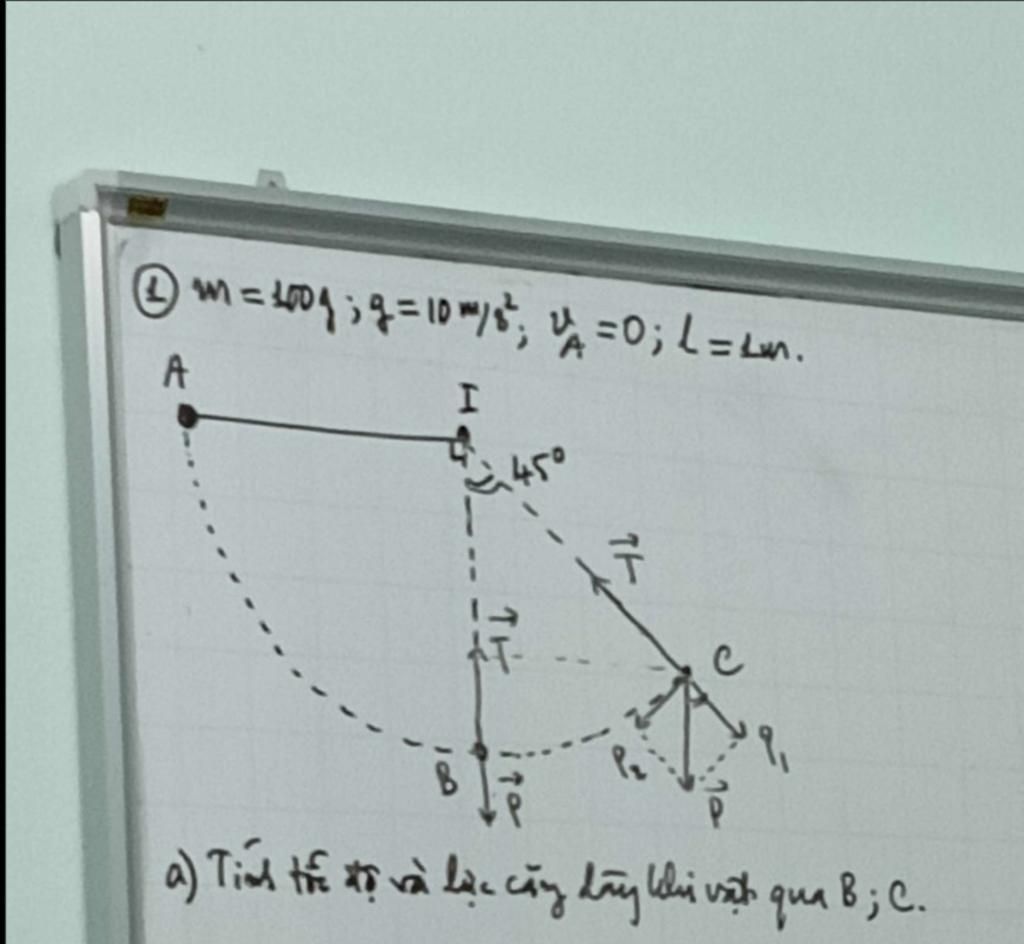 ① m = 100g ; g = 10 m/s²; v_A = 0 ; l = 1m.
A
I
45°
T
T
C
B
P
P₂
P
P₁
a) Tính tốc độ và lực căng dây khi vật qua B ; C.